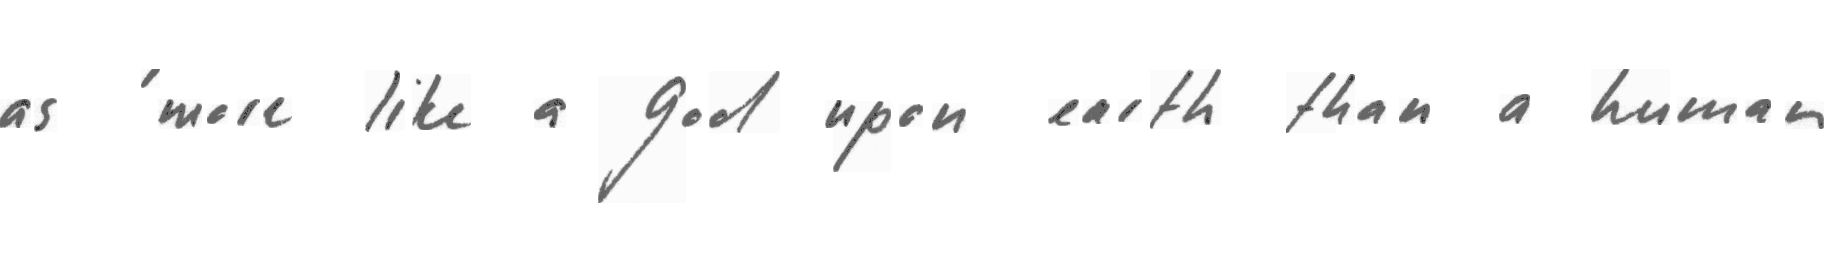 as 'more like a God upon earth than a human